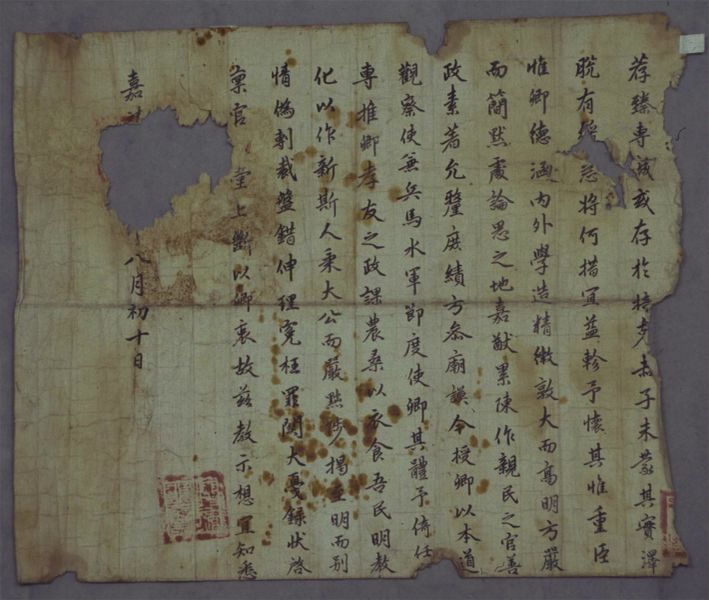 荐臻專或存於掊克赤子未蒙其實澤
脱有急將何措宜益軫予懷其惟重臣
惟卿德涵內外學造精微敦大而高明方嚴
而簡默處論思之地嘉猷累陳作親民之官善
政素著允釐庶績方叅廟謨今授卿以本道
觀察使兼兵馬水軍節度使卿其體予倚任
專推卿孝友之政課農桑以衣食吾民明教
化以作新斯人秉大公而嚴黜陟揭至明而別
情僞剸裁盤錯伸理寃枉罪関大戛錄狀啓
稟官堂上斷以卿衷故玆教示想宜知悉
嘉八月初十日